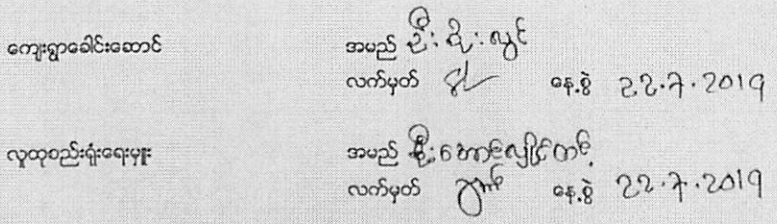 ကျေးရွာခေါင်းဆောင် အမည် ဦးစိုးလွင်
လက်မှတ် နေ့စွဲ 22.7.2019
လူထုစည်းရုံးရေးမှူး အမည်
လက်မှတ် နေ့စွဲ 22.7.2019